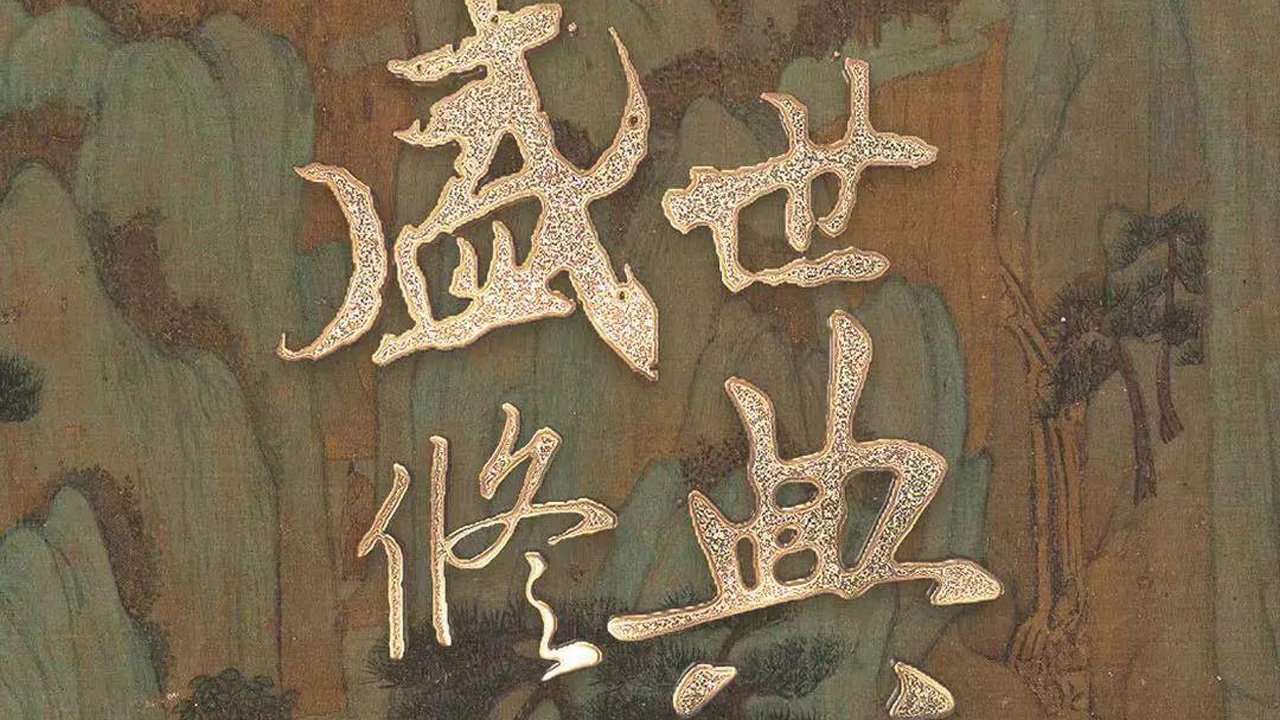 盛世
修典